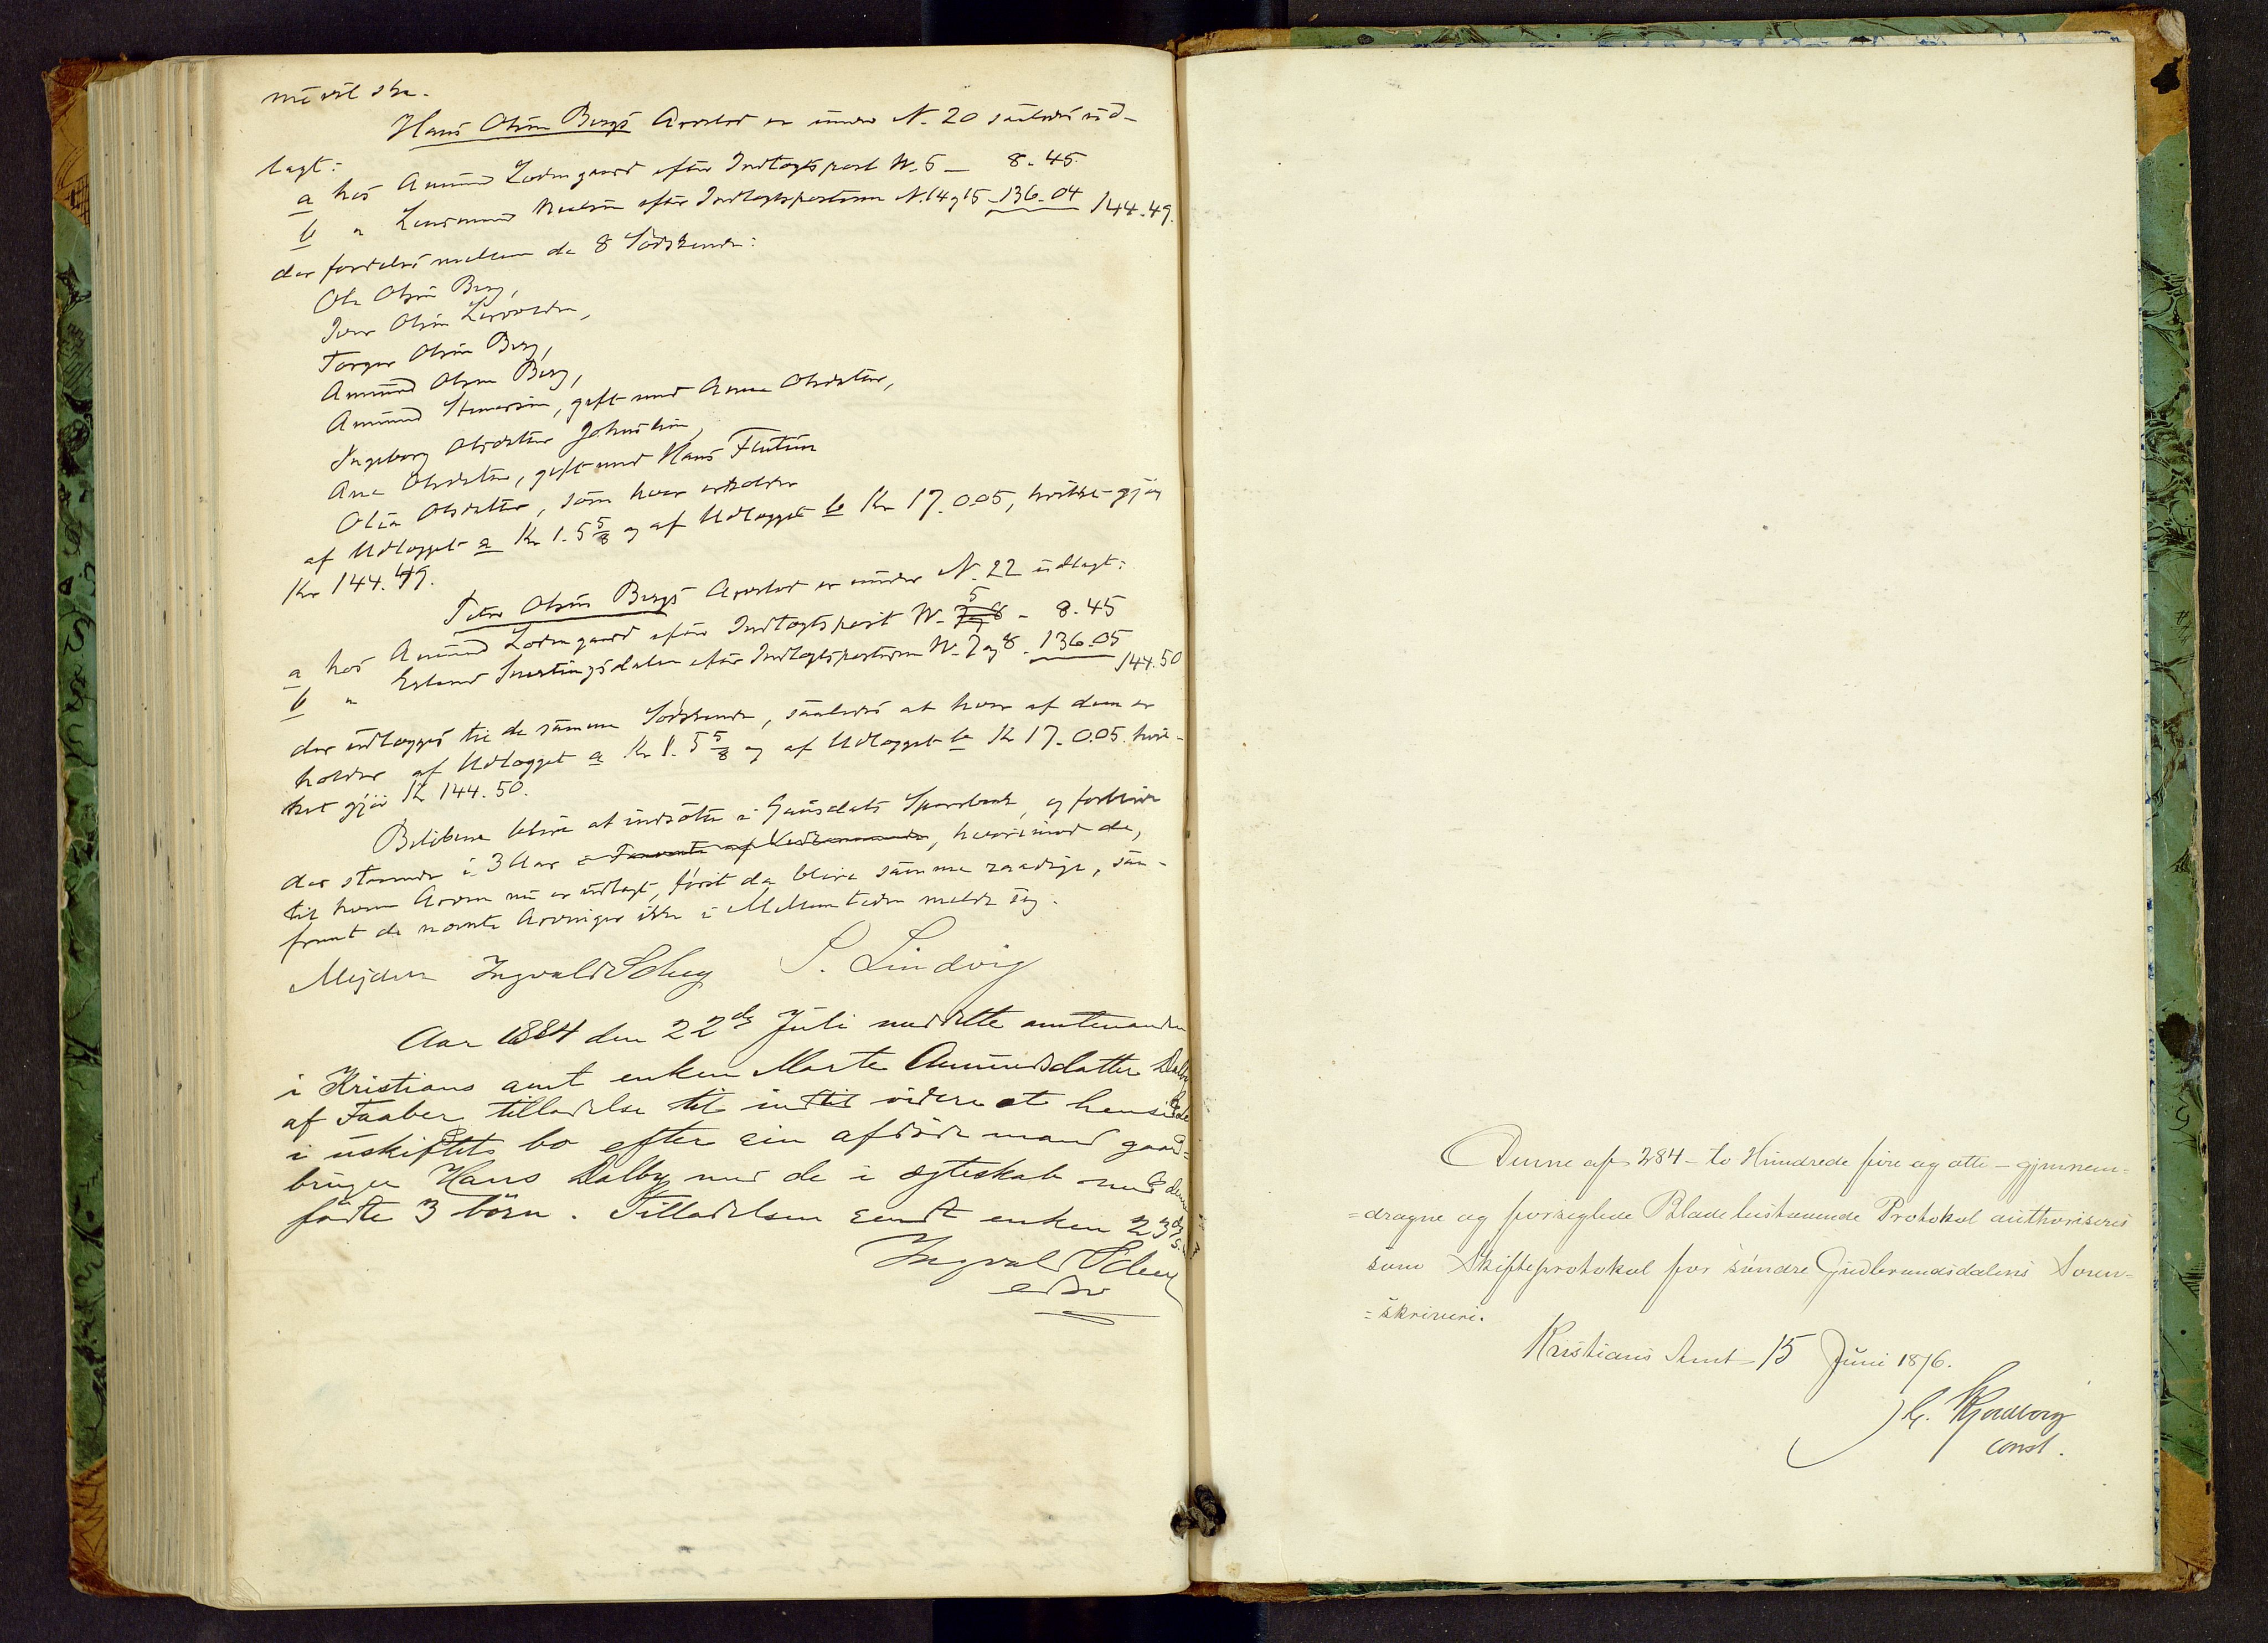 nu vil ske.
Hans Olsen Bergs Arvelod er under N. 20 saaledes ud-
lagt:
a hos Amund Lodengaard efter Indtægtspost N. 5 - 8.45
b " Lensmand Nielsen efter Indtægtsposterne N. 14 og 15 - 136.04 144.49.
der fordeles mellem de 8 Sødskende:
Ole Olsen Berg,
Iver Olsen
Torger Olsen Berg,
Amund Olsen Berg,
Amund Stenersen, gift med Anne Olsdatter,
Ingeborg Olsdatter Johnslien,
Ane Olsdatter, gift med Hans Flutun
Olia Olsdatter, som hver erholder
af Udlægget a Kr 1.5 5/8 og af Udlægget b Kr 17.005, hvilket gjør
Kr 144.49.
Peter Olsens Bergs Arvelod er under N. 22 udlagt:
a hos Amund Lodengaard efter Indtægtspost N. 5 - 8.45
b " Erland Svartingsdalen efter Indtægtsposterne N. 7 og 8 - 136.05 144.50
der udlægges til de samme Sødskende, saaledes at hver af dem er-
holder af Udlægget a Kr 1.5 5/8 og af Udlægget b Kr 17.005. hvil-
ket gjør Kr 144.50.
Beløbene blive at indsætte i Gausdals Sparebank, og forblive
der staaende i 3 Aar, hvorimod de,
til hvem Arven nu er udlagt, først da blive samme raadige, saa-
fremt de nævnte Arvinger ikke i Mellemtiden melde sig.
Mejdell Ingvald Schey S. Lindvig
Aar 1884 den 22de Juli meddelte amtmanden
i Kristians amt enken Marte Amundsdatter Dalby
af Faaberg tilladelse til indtil videre at hensidde
i uskiftet bo efter sin afdøde mand gaard-
bruger Hans Dalby med de i ægteskab med denne
fødte 3 børn. Tilladelsen sendt enken 23de s.
Ingvald Schey
edsv
Denne af 284 - to Hundrede fire og otti - gjennem-
=dragne og forseglede Blade bestaaende Protokol authoriseres
som Skifteprotokol for søndre Gudbrandsdalens Soren-
=skriveri.
Kristians Amt 15 Juni 1876.
const.